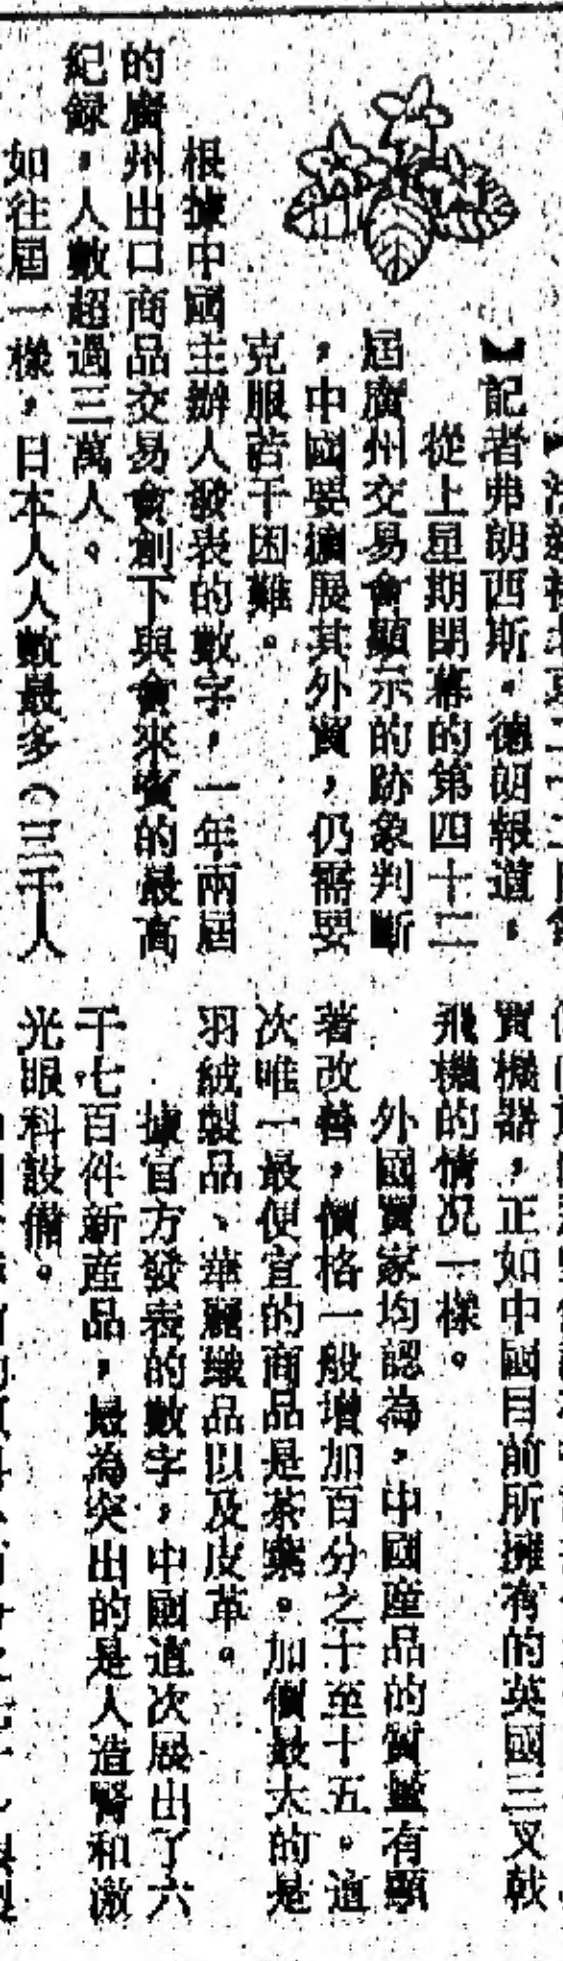 】記者弗朗西斯・德朗報道：
從上星期閉幕的第四十二
屆廣州交易會顯示的跡象判斷
，中國要擴展其外貿，仍需要
克服若干困難。
根據中國主辦人發表的數字，一年兩屆
的廣州出口商品交易會創下與會來賓的最高
紀録，人數超過三萬人。
如往屆一樣，日本人人數最多（三千人
買機器，正如中國目前所擁有的英國三叉戟
飛機的情况一樣。
外國買家均認為，中國產品的質量有顯
著改善，價格一般增加百分之十至十五。這
次唯一最便宜的商品是茶葉。加價最大的是
羽絨製品、華麗織品以及皮革。
據官方發表的數字，中國這次展出了六
千七百件新產品，最為突出的是人造腎和激
光眼科設備。